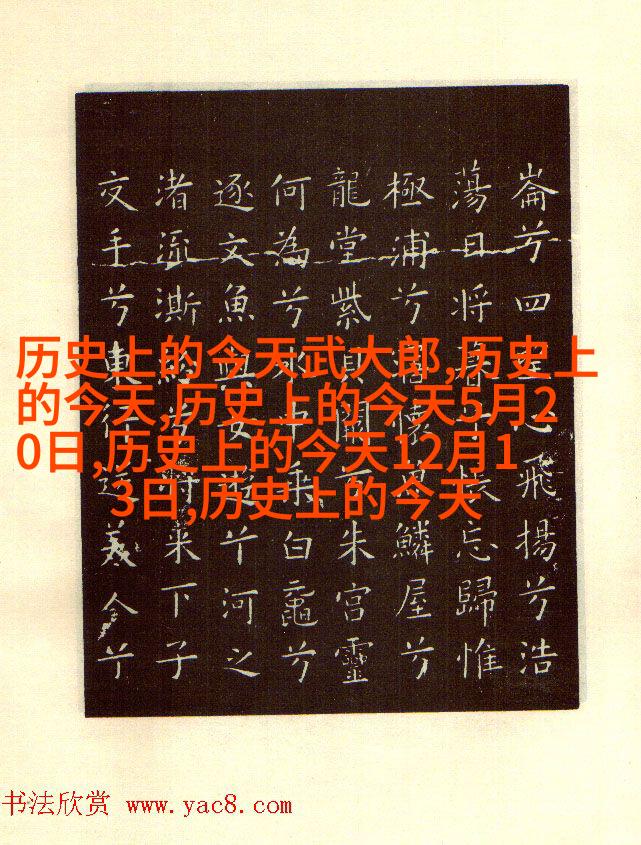 历史上的今天武大郎,历史上
的今天,历史上的今天5月2
0日,历史上的今天12月1
3日,历史上的今天
崙兮四心飛揚兮浩
蕩日將暮兮悵忘歸惟
極浦兮寤懷鱗屋兮
龍堂紫貝闕兮朱宮靈
何為兮水中乘白黿兮
逐文魚與女遊兮河之
渚流澌紛兮將來下子
交手兮東行送美人兮
书法欣赏 www.yac8.com